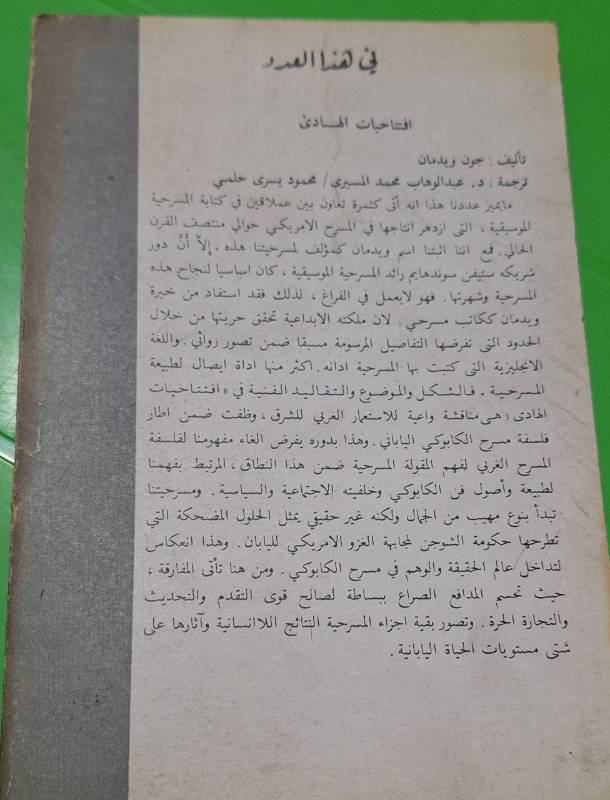 في هذا العدد
افتتاحيات الهادئ
تأليف : جون ويدمان
ترجمة : د. عبدالوهاب محمد المسيرى / محمود يسرى حلمي
مايميز عددنا هذا انه أتى كثمرة تعاون بين عملاقين في كتابة المسرحية
الموسيقية ، التى ازدهر انتاجها في المسرح الامريكي حوالي منتصف القرن
الحالي . فمع اننا اثبتنا اسم ويدمان كمؤلف لمسرحيتنا هذه ، إلاّ أنَّ دور
شريكه ستيفن سوندهايم رائد المسرحية الموسيقية ، كان اساسيا لنجاح هذه
المسرحية وشهرتها . فهو لايعمل في الفراغ ، لذلك فقد استفاد من خبرة
ويدمان ككاتب مسرحي . لان ملكته الابداعية تحقق حريتها من خلال
الحدود التى تفرضها التفاصيل المرسومة مسبقا ضمن تصور روائي . واللغة
الانجليزية التى كتبت بها المسرحية ادانه . اكثر منها اداة ايصال لطبيعة
المسرحية . فالشكل والموضوع والتقاليد الفنية في « افتتاحيات
الهادى » هى مناقشة واعية للاستعمار الغربي للشرق ، وظفت ضمن اطار
فلسفة مسرح الكابوكي الياباني . وهذا بدوره يفرض الغاء مفهومنا لفلسفة
المسرح الغربي لفهم المقولة المسرحية ضمن هذا النطاق ، المرتبط بفهمنا
لطبيعة وأصول فن الكابوكي وخلفيته الاجتماعية والسياسية . ومسرحيتنا
تبدأ بنوع مهيب من الجمال ولكنه غير حقيقي يمثل الحلول المضحكة التي
تطرحها حكومة الشوجن لمجابهة الغزو الامريكي لليابان . وهذا انعكاس
لتداخل عالم الحقيقة والوهم في مسرح الكابوكي . ومن هنا تأتى المفارقة ،
حيث تحسم المدافع الصراع ببساطة لصالح قوى التقدم والتحديث
والتجارة الحرة . وتصور بقية اجزاء المسرحية النتائج اللاانسانية وآثارها على
شتى مستويات الحياة اليابانية .